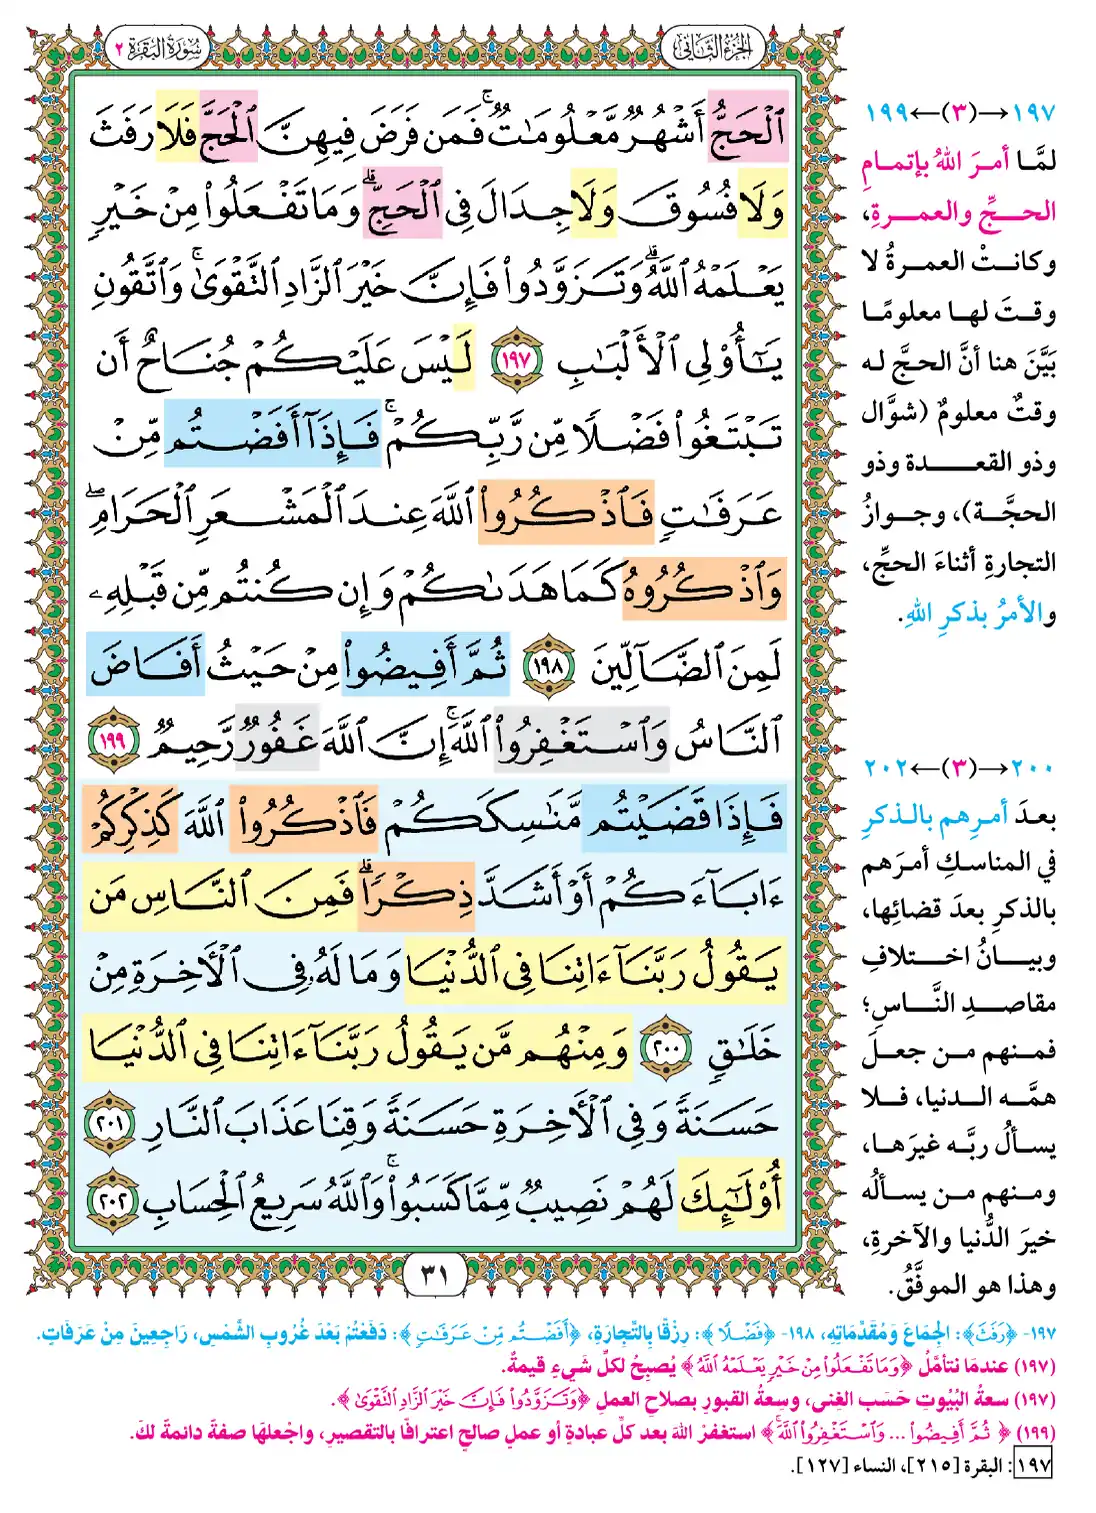 الجُزءُ الثَّانِي
سُورَةُ البَقَرَةِ ٢
ٱلۡحَجُّ أَشۡهُرٞ مَّعۡلُومَٰتٞۚ فَمَن فَرَضَ فِيهِنَّ ٱلۡحَجَّ فَلَا رَفَثَ
وَلَا فُسُوقَ وَلَا جِدَالَ فِي ٱلۡحَجِّۗ وَمَا تَفۡعَلُواْ مِنۡ خَيۡرٖ
يَعۡلَمۡهُ ٱللَّهُۗ وَتَزَوَّدُواْ فَإِنَّ خَيۡرَ ٱلزَّادِ ٱلتَّقۡوَىٰۚ وَٱتَّقُونِ
يَٰٓأُوْلِي ٱلۡأَلۡبَٰبِ ١٩٧ لَيۡسَ عَلَيۡكُمۡ جُنَاحٌ أَن
تَبۡتَغُواْ فَضۡلٗا مِّن رَّبِّكُمۡۚ فَإِذَآ أَفَضۡتُم مِّنۡ
عَرَفَٰتٖ فَٱذۡكُرُواْ ٱللَّهَ عِندَ ٱلۡمَشۡعَرِ ٱلۡحَرَامِۖ
وَٱذۡكُرُوهُ كَمَا هَدَىٰكُمۡ وَإِن كُنتُم مِّن قَبۡلِهِۦ
لَمِنَ ٱلضَّآلِّينَ ١٩٨ ثُمَّ أَفِيضُواْ مِنۡ حَيۡثُ أَفَاضَ
ٱلنَّاسُ وَٱسۡتَغۡفِرُواْ ٱللَّهَۚ إِنَّ ٱللَّهَ غَفُورٞ رَّحِيمٞ ١٩٩
فَإِذَا قَضَيۡتُم مَّنَٰسِكَكُمۡ فَٱذۡكُرُواْ ٱللَّهَ كَذِكۡرِكُمۡ
ءَابَآءَكُمۡ أَوۡ أَشَدَّ ذِكۡرٗاۗ فَمِنَ ٱلنَّاسِ مَن
يَقُولُ رَبَّنَآ ءَاتِنَا فِي ٱلدُّنۡيَا وَمَا لَهُۥ فِي ٱلۡأٓخِرَةِ مِنۡ
خَلَٰقٖ ٢٠٠ وَمِنۡهُم مَّن يَقُولُ رَبَّنَآ ءَاتِنَا فِي ٱلدُّنۡيَا
حَسَنَةٗ وَفِي ٱلۡأٓخِرَةِ حَسَنَةٗ وَقِنَا عَذَابَ ٱلنَّارِ ٢٠١
أُوْلَٰٓئِكَ لَهُمۡ نَصِيبٞ مِّمَّا كَسَبُواْۚ وَٱللَّهُ سَرِيعُ ٱلۡحِسَابِ ٢٠٢
٣١
١٩٧→(٣)←١٩٩
لمَّا أمرَ اللهُ بإتمامِ
الحجِّ والعمرةِ،
وكانتْ العمرةُ لا
وقتَ لها معلومًا
بيَّنَ هنا أنَّ الحجَّ له
وقتٌ معلومٌ (شوَّال
وذو القعدة وذو
الحجَّة)، وجوازُ
التجارةِ أثناءَ الحجِّ،
والأمرُ بذكرِ اللهِ.
٢٠٠→(٣)←٢٠٢
بعدَ أمرِهم بالذكرِ
في المناسكِ أمرَهم
بالذكرِ بعدَ قضائِها،
وبيانُ اختلافِ
مقاصدِ النَّاسِ؛
فمنهم من جعلَ
همَّه الدنيا، فلا
يسألُ ربَّه غيرَها،
ومنهم من يسألُه
خيرَ الدُّنيا والآخرةِ،
وهذا هو الموفَّقُ.
١٩٧- ﴿رَفَثَ﴾: الجِمَاعَ وَمُقَدِّمَاتِهِ، ١٩٨- ﴿فَضۡلٗا﴾: رِزْقًا بِالتِّجَارَةِ، ﴿أَفَضۡتُم مِّنۡ عَرَفَٰتٖ﴾: دَفَعْتُمْ بَعْدَ غُرُوبِ الشَّمْسِ، رَاجِعِينَ مِنْ عَرَفَاتٍ.
(١٩٧) عندمَا نتأمَّل ﴿وَمَا تَفۡعَلُواْ مِنۡ خَيۡرٖ يَعۡلَمۡهُ ٱللَّهُ﴾ يُصبحُ لكلِّ شيءٍ قيمةٌ.
(١٩٧) سعةُ البُيُوتِ حَسَب الغِنى، وسعةُ القبورِ بصلاحِ العملِ ﴿وَتَزَوَّدُواْ فَإِنَّ خَيۡرَ ٱلزَّادِ ٱلتَّقۡوَىٰ﴾.
(١٩٩) ﴿ثُمَّ أَفِيضُواْ ... وَٱسۡتَغۡفِرُواْ ٱللَّهَۚ﴾ استغفرْ اللهَ بعد كلِّ عبادةٍ أو عملٍ صالحٍ اعترافًا بالتقصيرِ، واجْعلهَا صفةً دائمةً لكَ.
١٩٧: البقرة [٢١٥]، النساء [١٢٧].